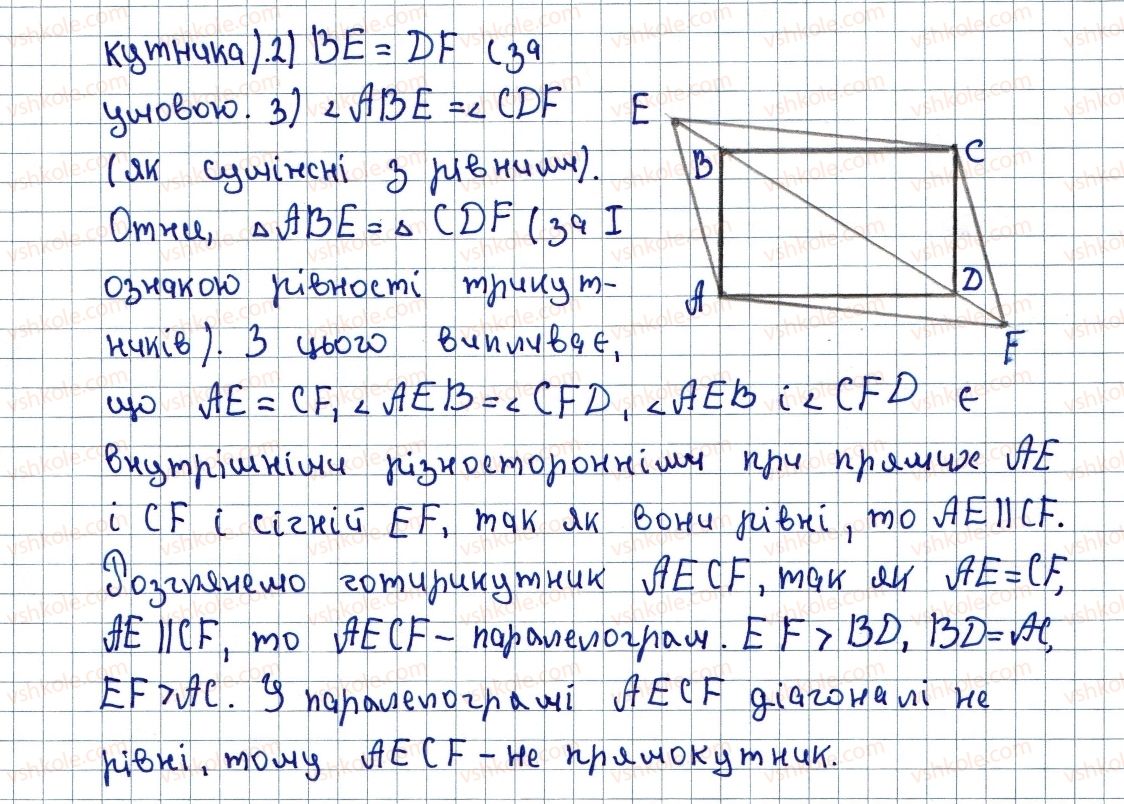 кутника). 2) BE = DF (за
умовою. 3) ∠ABE = ∠CDF
(як суміжні з рівними).
Отже, △ABE = △CDF (за I
ознакою рівності трикут-
ників). З цього випливає,
що AE = CF, ∠AEB = ∠CFD, ∠AEB і ∠CFD є
внутрішніми різносторонніми при прямих AE
і CF і січній EF, так як вони рівні, то AE || CF.
Розглянемо чотирикутник AECF, так як AE = CF,
AE || CF, то AECF – паралелограм. EF > BD, BD = AC,
EF > AC. У паралелограмі AECF діагоналі не
рівні, тому AECF – не прямокутник.
E
B
C
A
D
F
vshkole.com